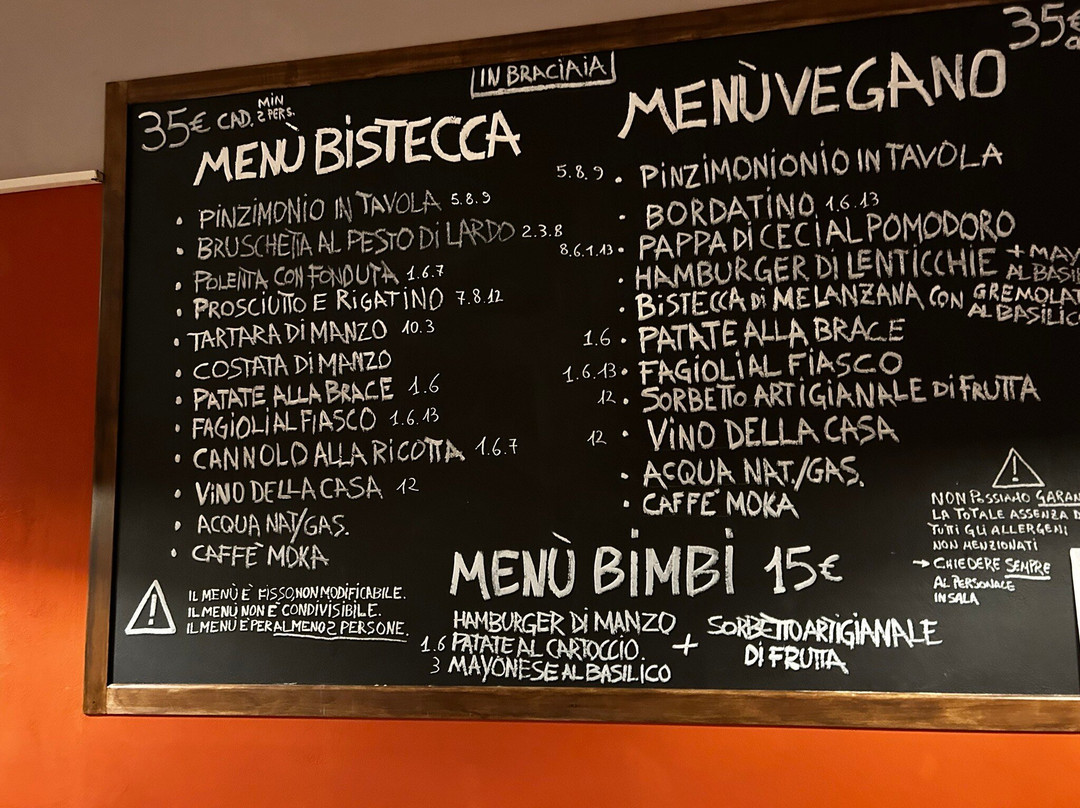 IN BRACIAIA
35€ CAD. MIN 2 PERS.
MENÙ BISTECCA
• PINZIMONIO IN TAVOLA 5.8.9
• BRUSCHETTA AL PESTO DI LARDO 2.3.8
• POLENTA CON FONDUTA 1.6.7
• PROSCIUTTO E RIGATINO 7.8.12
• TARTARA DI MANZO 10.3
• COSTATA DI MANZO
• PATATE ALLA BRACE 1.6
• FAGIOLI AL FIASCO 1.6.13
• CANNOLO ALLA RICOTTA 1.6.7
• VINO DELLA CASA 12
• ACQUA NAT/GAS.
• CAFFÈ MOKA
IL MENÙ È FISSO, NON MODIFICABILE.
IL MENÙ NON È CONDIVISIBILE.
IL MENÙ È PER ALMENO 2 PERSONE.
35€
MENÙ VEGANO
5.8.9 • PINZIMONIONIO IN TAVOLA
• BORDATINO 1.6.13
8.6.1.13 • PAPPA DI CECI AL POMODORO
• HAMBURGER DI LENTICCHIE + MAY
AL BASI
• BISTECCA DI MELANZANA CON GREMOLAT
AL BASILIC
1.6 • PATATE ALLA BRACE
1.6.13 • FAGIOLI AL FIASCO
12 • SORBETTO ARTIGIANALE DI FRUTTA
12 • VINO DELLA CASA
• ACQUA NAT./GAS.
• CAFFÈ MOKA
NON POSSIAMO GARAN
LA TOTALE ASSENZA D
TUTTI GLI ALLERGENI
NON MENZIONATI
→ CHIEDERE SEMPRE
AL PERSONALE
IN SALA
MENÙ BIMBI 15€
HAMBURGER DI MANZO
1.6 PATATE AL CARTOCCIO.
3 MAYONESE AL BASILICO
+ SORBETTO ARTIGIANALE
DI FRUTTA